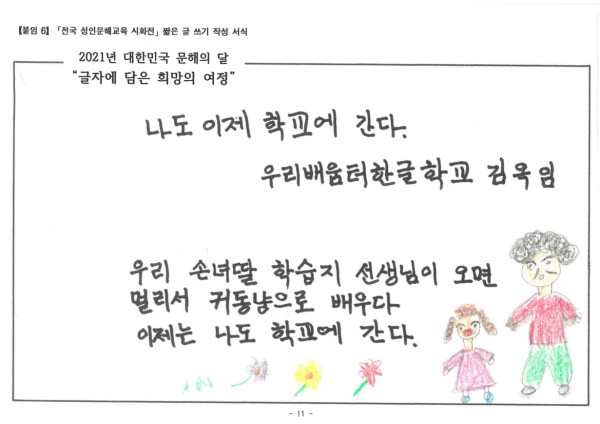 【붙임 6】 「전국 성인문해교육 시화전」 짧은 글 쓰기 작성 서식
2021년 대한민국 문해의 달
“글자에 담은 희망의 여정”
나도 이제 학교에 간다.
우리배움터한글학교 김옥임
우리 손녀딸 학습지 선생님이 오면
멀리서 귀동냥으로 배우다
이제는 나도 학교에 간다.
- 11 -